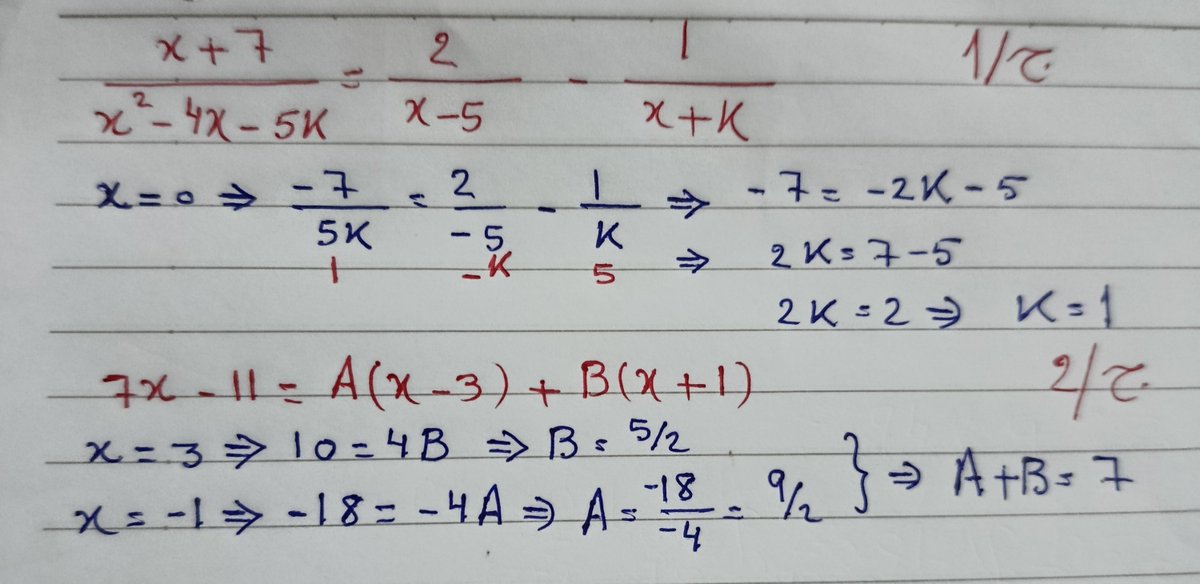 x+7/x²-4x-5K = 2/x-5 - 1/x+K 1/ح.
x=0 ⇒ -7/5K = 2/-5 - 1/K ⇒ -7 = -2K-5
1 -K 5 ⇒ 2K=7-5
2K=2 ⇒ K=1
7x-11 = A(x-3)+B(x+1) 2/ح.
x=3 ⇒ 10=4B ⇒ B=5/2
x=-1 ⇒ -18=-4A ⇒ A=-18/-4=9/2 } ⇒ A+B=7